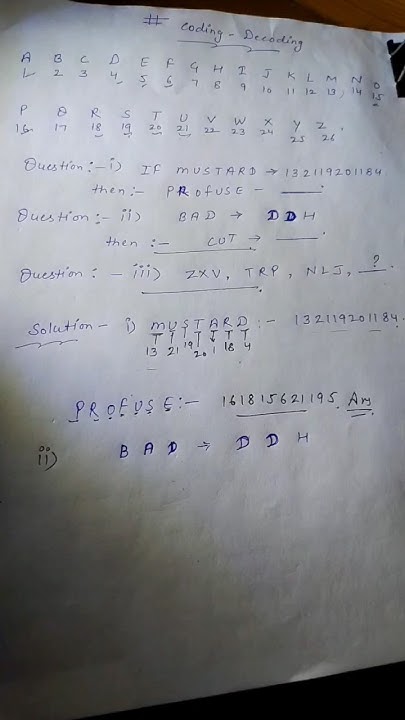 # Coding - Decoding
A B C D E F G H I J K L M N O
1 2 3 4 5 6 7 8 9 10 11 12 13 14 15
P Q R S T U V W X Y Z
16 17 18 19 20 21 22 23 24 25 26
Question:- i) If MUSTARD → 132119201184
then:- PROFUSE -
Question:- ii) BAD → DDH
then :- CUT →
Question: - iii) ZXV, TRP, NLJ, ?
Solution - i) MUSTARD :- 132119201184.
13 21 19 20 1 18 4
PROFUSE:- 161815621195. Ans
ii) BAD → DDH